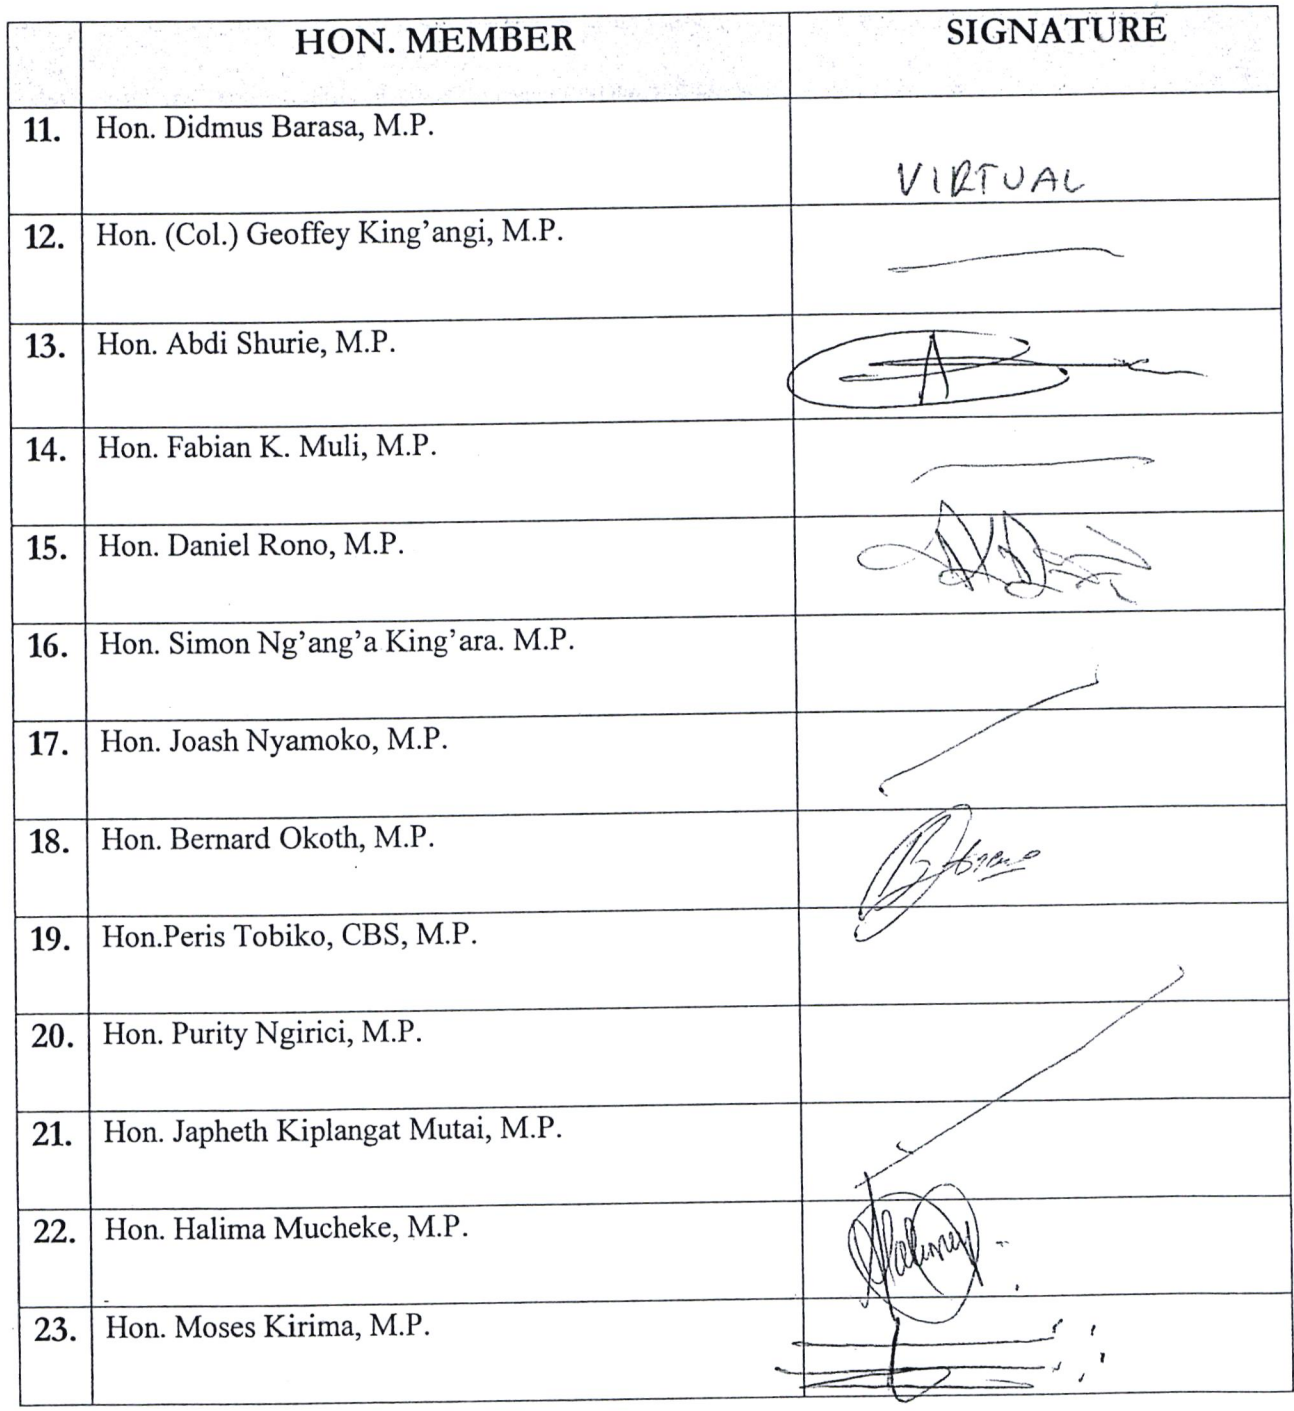 HON. MEMBER SIGNATURE
11. Hon. Didmus Barasa, M.P.
VIRTUAL
12. Hon. (Col.) Geoffey King’angi, M.P.
13. Hon. Abdi Shurie, M.P.
14. Hon. Fabian K. Muli, M.P.
15. Hon. Daniel Rono, M.P.
16. Hon. Simon Ng’ang’a King’ara. M.P.
17. Hon. Joash Nyamoko, M.P.
18. Hon. Bernard Okoth, M.P.
19. Hon.Peris Tobiko, CBS, M.P.
20. Hon. Purity Ngirici, M.P.
21. Hon. Japheth Kiplangat Mutai, M.P.
22. Hon. Halima Mucheke, M.P.
23. Hon. Moses Kirima, M.P.